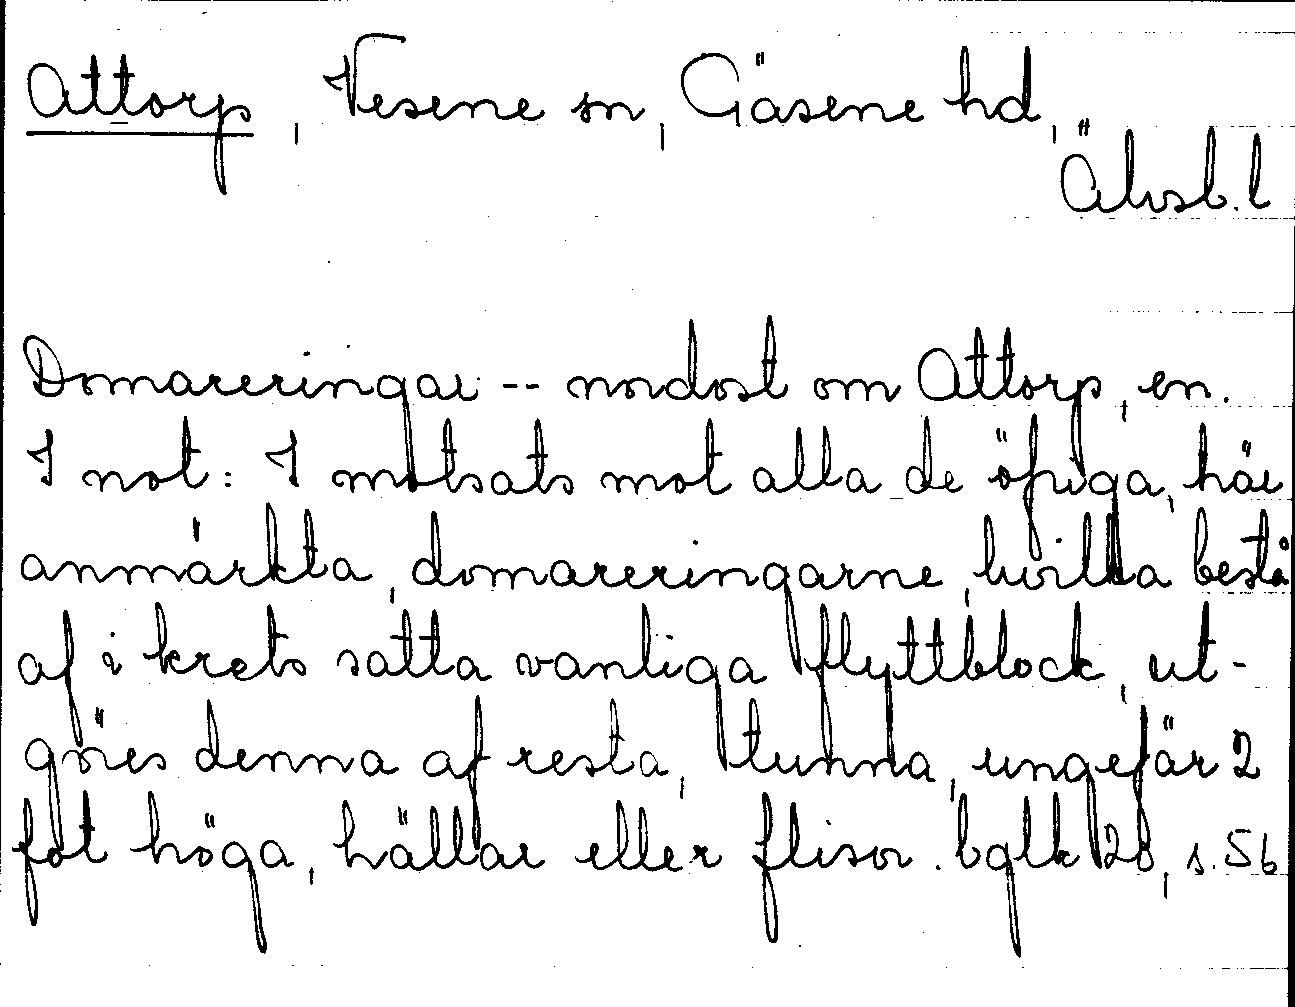 Attorp, Vesene sn, Gäsene hd,
Älvsb. l
Domareringar -- nordost om Attorp, en.
I not: I motsats mot alla de öfriga, här
anmärkta, domareringarne, hvilka bestå
af i krets satta vanliga flyttblock, ut-
göres denna af resta, tunna, ungefär 2
fot höga, hällar eller flisor. bglk 28, s. 56